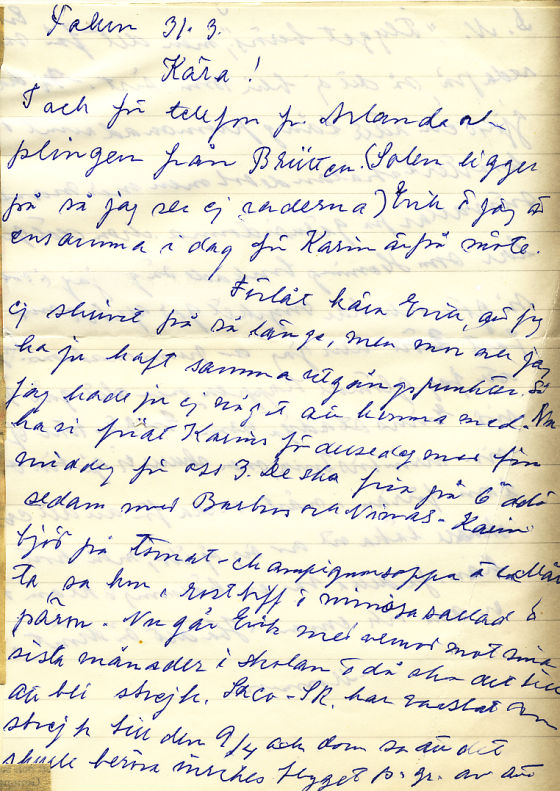 Falun 31.3.
Kära!
Tack för telefon fr. Arlanda o
plingen från Britten. (Solen ligger
på så jag ser ej raderna) Erik å jag är
ensamma i dag för Karin är på möte.
Förlåt kära Erik, att jag
ej skrivit på så länge, men mor och jag
ha ju haft samma utgångspunkter. Så
jag hade ju ej något att komma med. Nu
ha vi firat Karins födelsedag med fin
middag för oss 3. De ska fira på 6
sedan med Barbro och Karin
bjöd på tomat-championsoppa å
ta, sa hon, rostbiff i mimosasallad å
päron. Nu går Erik med vemod mot sina
sista månader i skolan å då ska det till
att bli strejk. Saco-SR. har varslat om
strejk till den 9/4 och dom sa att det
skulle beröra flyget p. gr. av att